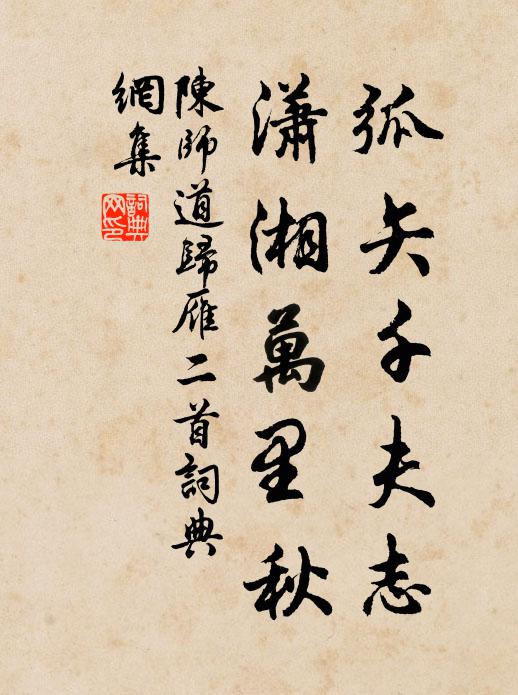 弧矢千夫志
瀟湘萬里秋
陳師道歸雁二首詞典
網集
詞典
网印